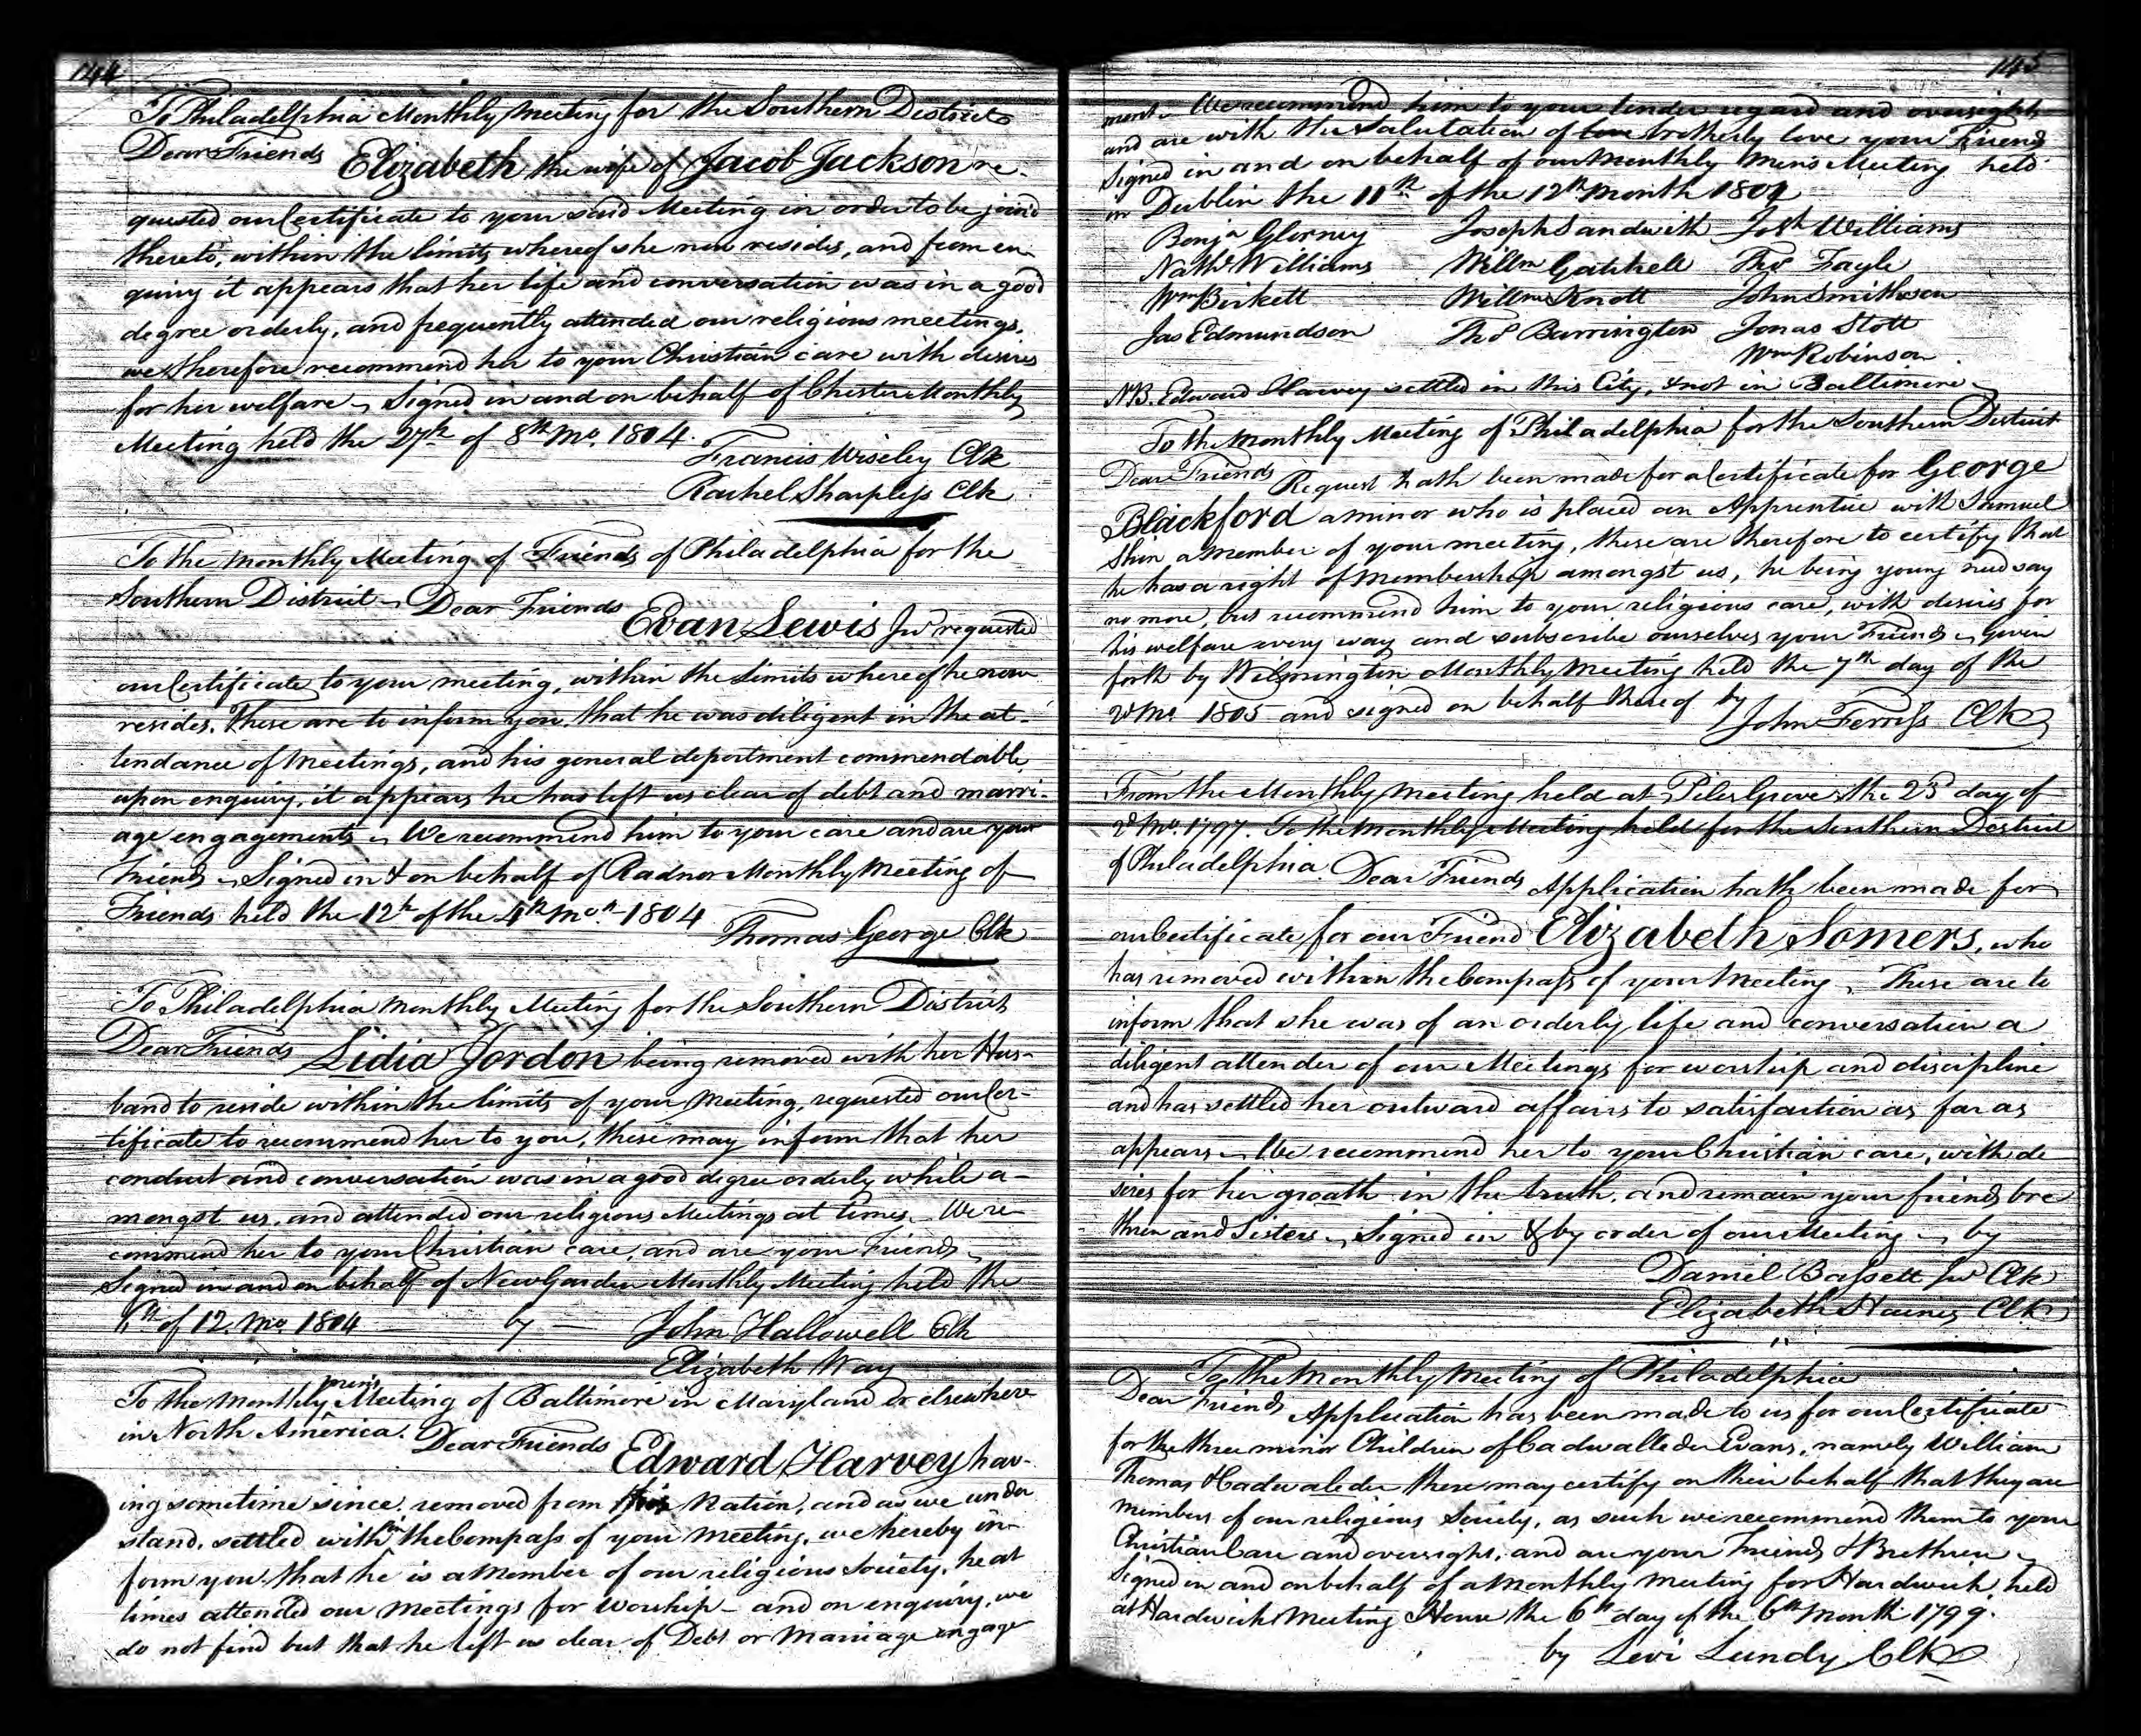 144
To Philadelphia Monthly Meeting for the Southern District
Dear Friends
Elizabeth the wife of Jacob Jackson re-
quested our Certificate to your said Meeting in order to be joined
thereto, within the limits whereof she now resides, and from en-
quiry it appears that her life and conversation was in a good
degree orderly, and frequently attended our religious meetings,
we therefore recommend her to your Christian care with desires
for her welfare Signed in and on behalf of Chester Monthly
Meeting held the 27th of 8th Mo. 1804.
Francis Wiseley Clk
Rachel Sharpless Clk
To the Monthly Meeting of Friends of Philadelphia for the
Southern District Dear Friends
Evan Lewis Jur requested
our Certificate to your meeting, within the limits whereof he now
resides. These are to inform you that he was diligent in the at-
tendance of Meetings, and his general deportment commendable
upon enquiry, it appears he has left us clear of debt and marri-
age engagements We recommend him to your care and are your
Friends Signed in & on behalf of Radnor Monthly Meeting of
Friends held the 12th of the 4th Mon 1804
Thomas George Clk
To Philadelphia Monthly Meeting for the Southern District
Dear Friends Lidia Jordon being removed with her Hus-
band to reside within the limits of your Meeting, requested our Cer-
tificate to recommend her to you, these may inform that her
conduct and conversation was in a good degree orderly while a-
mongst us, and attended our religious Meetings at times. We re-
commend her to your Christian care, and are your Friends
Signed in and on behalf of New Garden Monthly Meeting held the
of 12. Mo. 1804 by John Hallowell Clk
Elizabeth Way
To the Monthly mens Meeting of Baltimore in Maryland or elsewhere
in North America. Dear Friends
Edward Harvey hav-
ing sometime since removed from this Nation, and as we under
stand, settled within the Compass of your Meeting, we hereby in-
form you that he is a Member of our religious Society, he at
times attended our Meetings for Worship - and on enquiry, we
do not find but that he left us clear of Debt or Marriage engage
145
ment We recommend him to your tender regard and oversight
and are with the salutation of love brotherly love your Friends
Signed in and on behalf of our Monthly Mens Meeting held
in Dublin the 11th of the 12th Month 1804
Benjn Clorney Joseph Sandwith Josh Williams
Nathl Williams Willm Gatchell Thos Fayle
Wm Birkett Willm Knott John Smithson
Jas Edmundson Thos Barrington Jonas Stott
Wm Robinson
NB. Edward Harvey settled in this City, & not in Baltimore
To the Monthly Meeting of Philadelphia for the Southern District
Dear Friends Request hath been made for a Certificate for George
Blackford a minor who is placed an Apprentice with Samuel
Shin a Member of your meeting, these are therefore to certify that
he has a right of Membership amongst us, he being young need say
no more, but recommend him to your religious care, with desires for
his welfare every way and subscribe ourselves your Friends Given
forth by Wilmington Monthly Meeting held the 7th day of the
2d Mo 1805 and signed on behalf thereof by
John Ferriss Clk
From the Monthly Meeting held at Piles Grove the 23d day of
2d Mo. 1797. To the Monthly Meeting held for the Southern District
of Philadelphia. Dear Friends Application hath been made for
our Certificate for our Friend Elizabeth Somers, who
has removed within the Compass of your Meeting, These are to
inform that she was of an orderly life and conversation a
diligent attender of our Meetings for worship and discipline
and has settled her outward affairs to satisfaction as far as
appears We recommend her to your Christian care, with de
sires for her groath in the truth, and remain your friends bre
thren and Sisters Signed in & by order of our Meeting by
Daniel Bassett Jur Clk
Elizabeth Haines Clk
To the Monthly Meeting of Philadelphia
Dear Friends Application has been made to us for our Certificate
for the three minor Children of Cadwalleder Evans, namely William
Thomas & Cadwaleder these may certify on their behalf that they are
Members of our religious Society, as such we recommend them to your
Christian Care and oversight, and are your Friends & Brethren
Signed in and on behalf of a Monthly Meeting for Hardwick, held
at Hardwick Meeting House the 6th day of the 6th Month 1799.
by Levi Lundy Clk